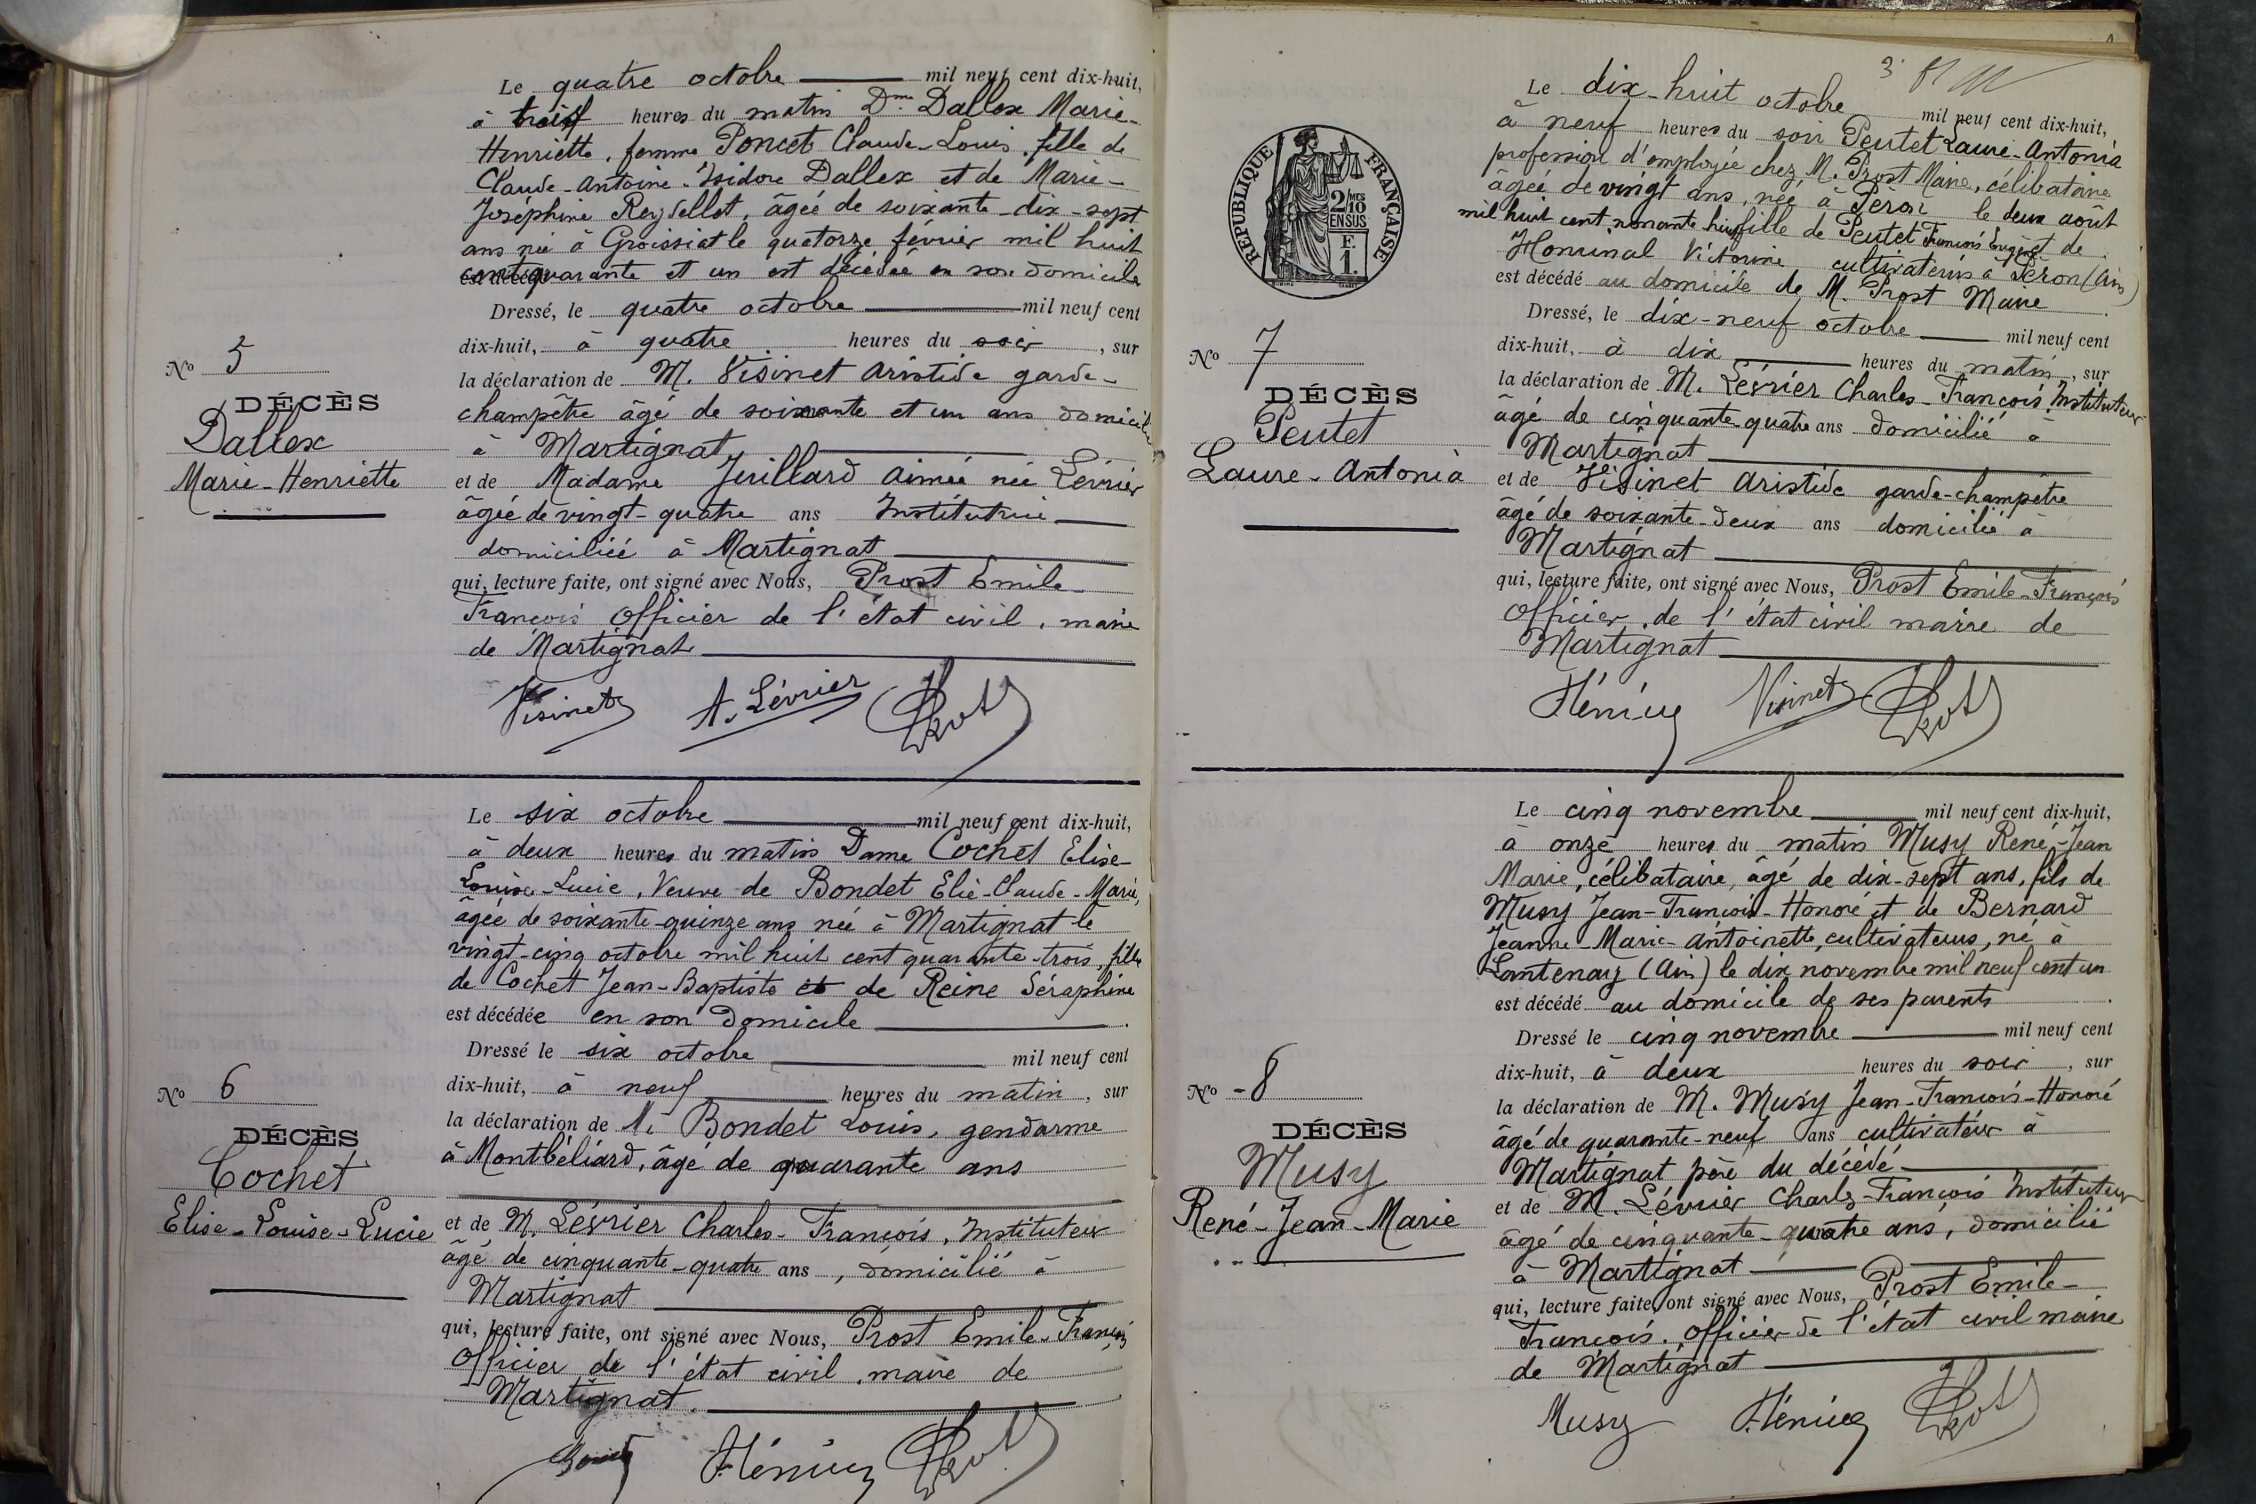 Le quatre octobre mil neuf cent dix-huit,
à trois heures du matin Dme Dallex Marie-
Henriette, femme Poncet Claude-Louis, fille de
Claude-Antoine-Isidore Dallex et de Marie-
Joséphine Reydellet, âgée de soixante-dix-sept
ans née à Groissiat le quatorze février mil huit
cent quarante et un est décédée en son domicile
Dressé, le quatre octobre mil neuf cent
dix-huit, à quatre heures du soir, sur
la déclaration de M. Visinet Aristide garde-
champêtre âgé de soixante et un ans domicilié
à Martignat
et de Madame Juillard Aimée née Lévrier
âgée de vingt-quatre ans Institutrice
domiciliée à Martignat
qui, lecture faite, ont signé avec Nous, Prost Emile-
François Officier de l'état civil, maire
de Martignat
No 5
DÉCÈS
Dallex
Marie-Henriette
Visinet A. Lévrier Prost
Le six octobre mil neuf cent dix-huit,
à deux heures du matin Dame Cochet Elise-
Louise-Lucie, Veuve de Bondet Elie-Claude-Marie,
âgée de soixante-quinze ans née à Martignat le
vingt-cinq octobre mil huit cent quarante-trois, fille
de Cochet Jean-Baptiste et de Reine Séraphine
est décédée en son domicile
Dressé le six octobre mil neuf cent
dix-huit, à neuf heures du matin, sur
la déclaration de M. Bondet Louis, gendarme
à Montbéliard, âgé de quarante ans
et de M. Lévrier Charles-François, Instituteur
âgé de cinquante-quatre ans, domicilié à
Martignat
qui, lecture faite, ont signé avec Nous, Prost Emile-François
Officier de l'état civil, maire de
Martignat.
No 6
DÉCÈS
Cochet
Elise-Louise-Lucie
Prost
3
RÉPUBLIQUE FRANÇAISE
2/10
EN SUS
F.
1.
Le dix-huit octobre mil neuf cent dix-huit,
à neuf heures du soir Peutet Laure-Antonia
profession d'employée chez M. Prost Maire, célibataire
âgée de vingt ans, née à Péron le deux août
mil huit cent nonante huit fille de Peutet François Eugène et de
Honunal Victorine cultivateurs à Péron (Ain)
est décédé au domicile de M. Prost Maire
Dressé, le dix-neuf octobre mil neuf cent
dix-huit, à dix heures du matin, sur
la déclaration de M. Lévrier Charles-François Instituteur
âgé de cinquante quatre ans domicilié à
Martignat
et de Visinet Aristide garde-champêtre
âgé de soixante-deux ans domicilié à
Martignat
qui, lecture faite, ont signé avec Nous, Prost Emile-François
Officier de l'état civil maire de
Martignat
No 7
DÉCÈS
Peutet
Laure-Antonia
Visinet Prost
Le cinq novembre mil neuf cent dix-huit,
à onze heures du matin Musy René-Jean
Marie, célibataire, âgé de dix-sept ans, fils de
Musy Jean-François-Honoré et de Bernard
Jeanne-Marie-Antoinette, cultivateurs, né à
Lantenay (Ain) le dix novembre mil neuf cent un
est décédé au domicile de ses parents.
Dressé le cinq novembre mil neuf cent
dix-huit, à deux heures du soir, sur
la déclaration de M. Musy Jean-François-Honoré
âgé de quarante-neuf ans cultivateur à
Martignat père du décédé
et de M. Lévrier Charles-François Instituteur
âgé de cinquante-quatre ans, domicilié
à Martignat
qui, lecture faite, ont signé avec Nous, Prost Emile-
François. Officier de l'état civil maire
de Martignat
No 8
DÉCÈS
Musy
René-Jean-Marie
Musy Prost